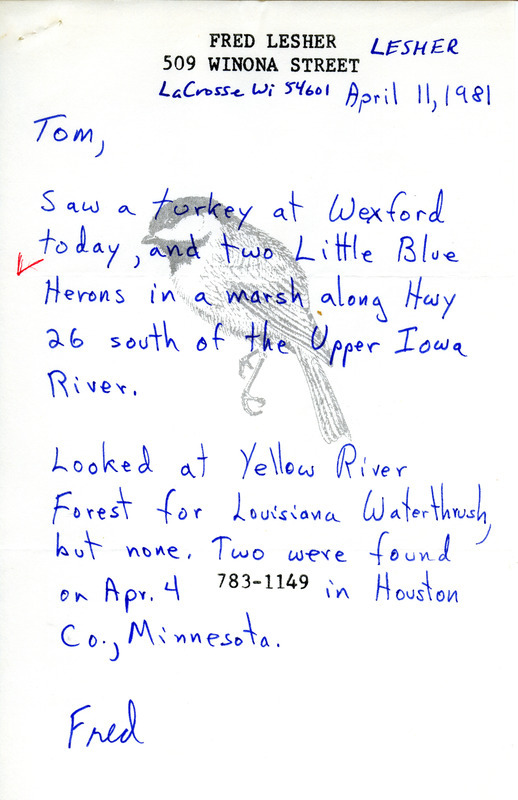 FRED LESHER LESHER
509 WINONA STREET
LaCrosse Wi 54601 April 11, 1981
Tom,
Saw a turkey at Wexford
today, and two Little Blue
Herons in a marsh along Hwy
26 south of the Upper Iowa
River.
Looked at Yellow River
Forest for Louisiana Waterthrush,
but none. Two were found
on Apr. 4 783-1149 in Houston
Co., Minnesota.
Fred